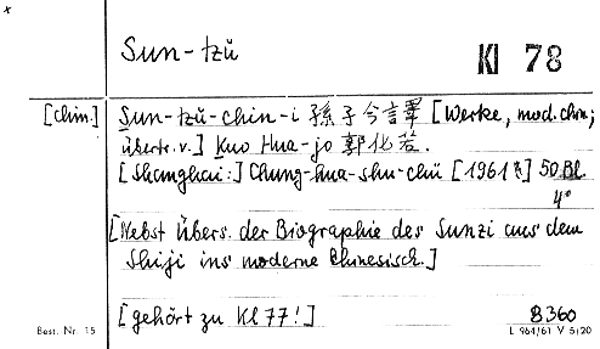 x
Sun-tzŭ
Kl 78
[chin.] Sun-tzŭ-chin-i 孫子今言睪 [Werke, mod. chin.;
übertr. v.] Kuo Hua-jo 郭化若.
[Shanghai:] Chung-hua-shu-chü [1961] 50 Bl.
4°
[Nebst Übers. der Biographie des Sunzi aus dem
Shiji ins moderne Chinesisch.]
[gehört zu Kl 77!]
8360
Best. Nr. 15
L 964/61 V 5/20